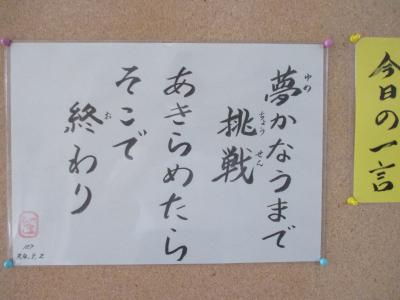 今日の一言
夢かなうまで
ゆめ
挑戦
ちょうせん
あきらめたら
そこで
終わり
お